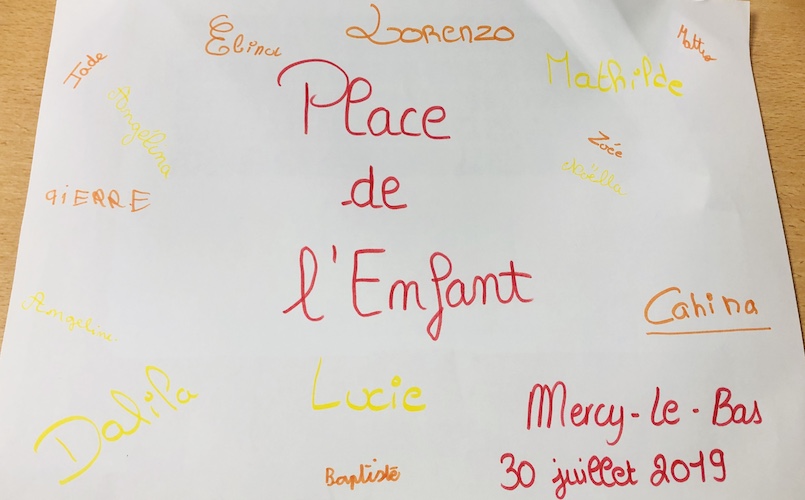 Lorenzo
Elina
Matteo
Jade
Mathilde
Angelina
Place
Zoée
de
Naëlla
qiERRE
l'Enfant
Cahina
Angeline
Lucie
Dalila
Mercy-Le-Bas
Baptiste
30 juillet 2019